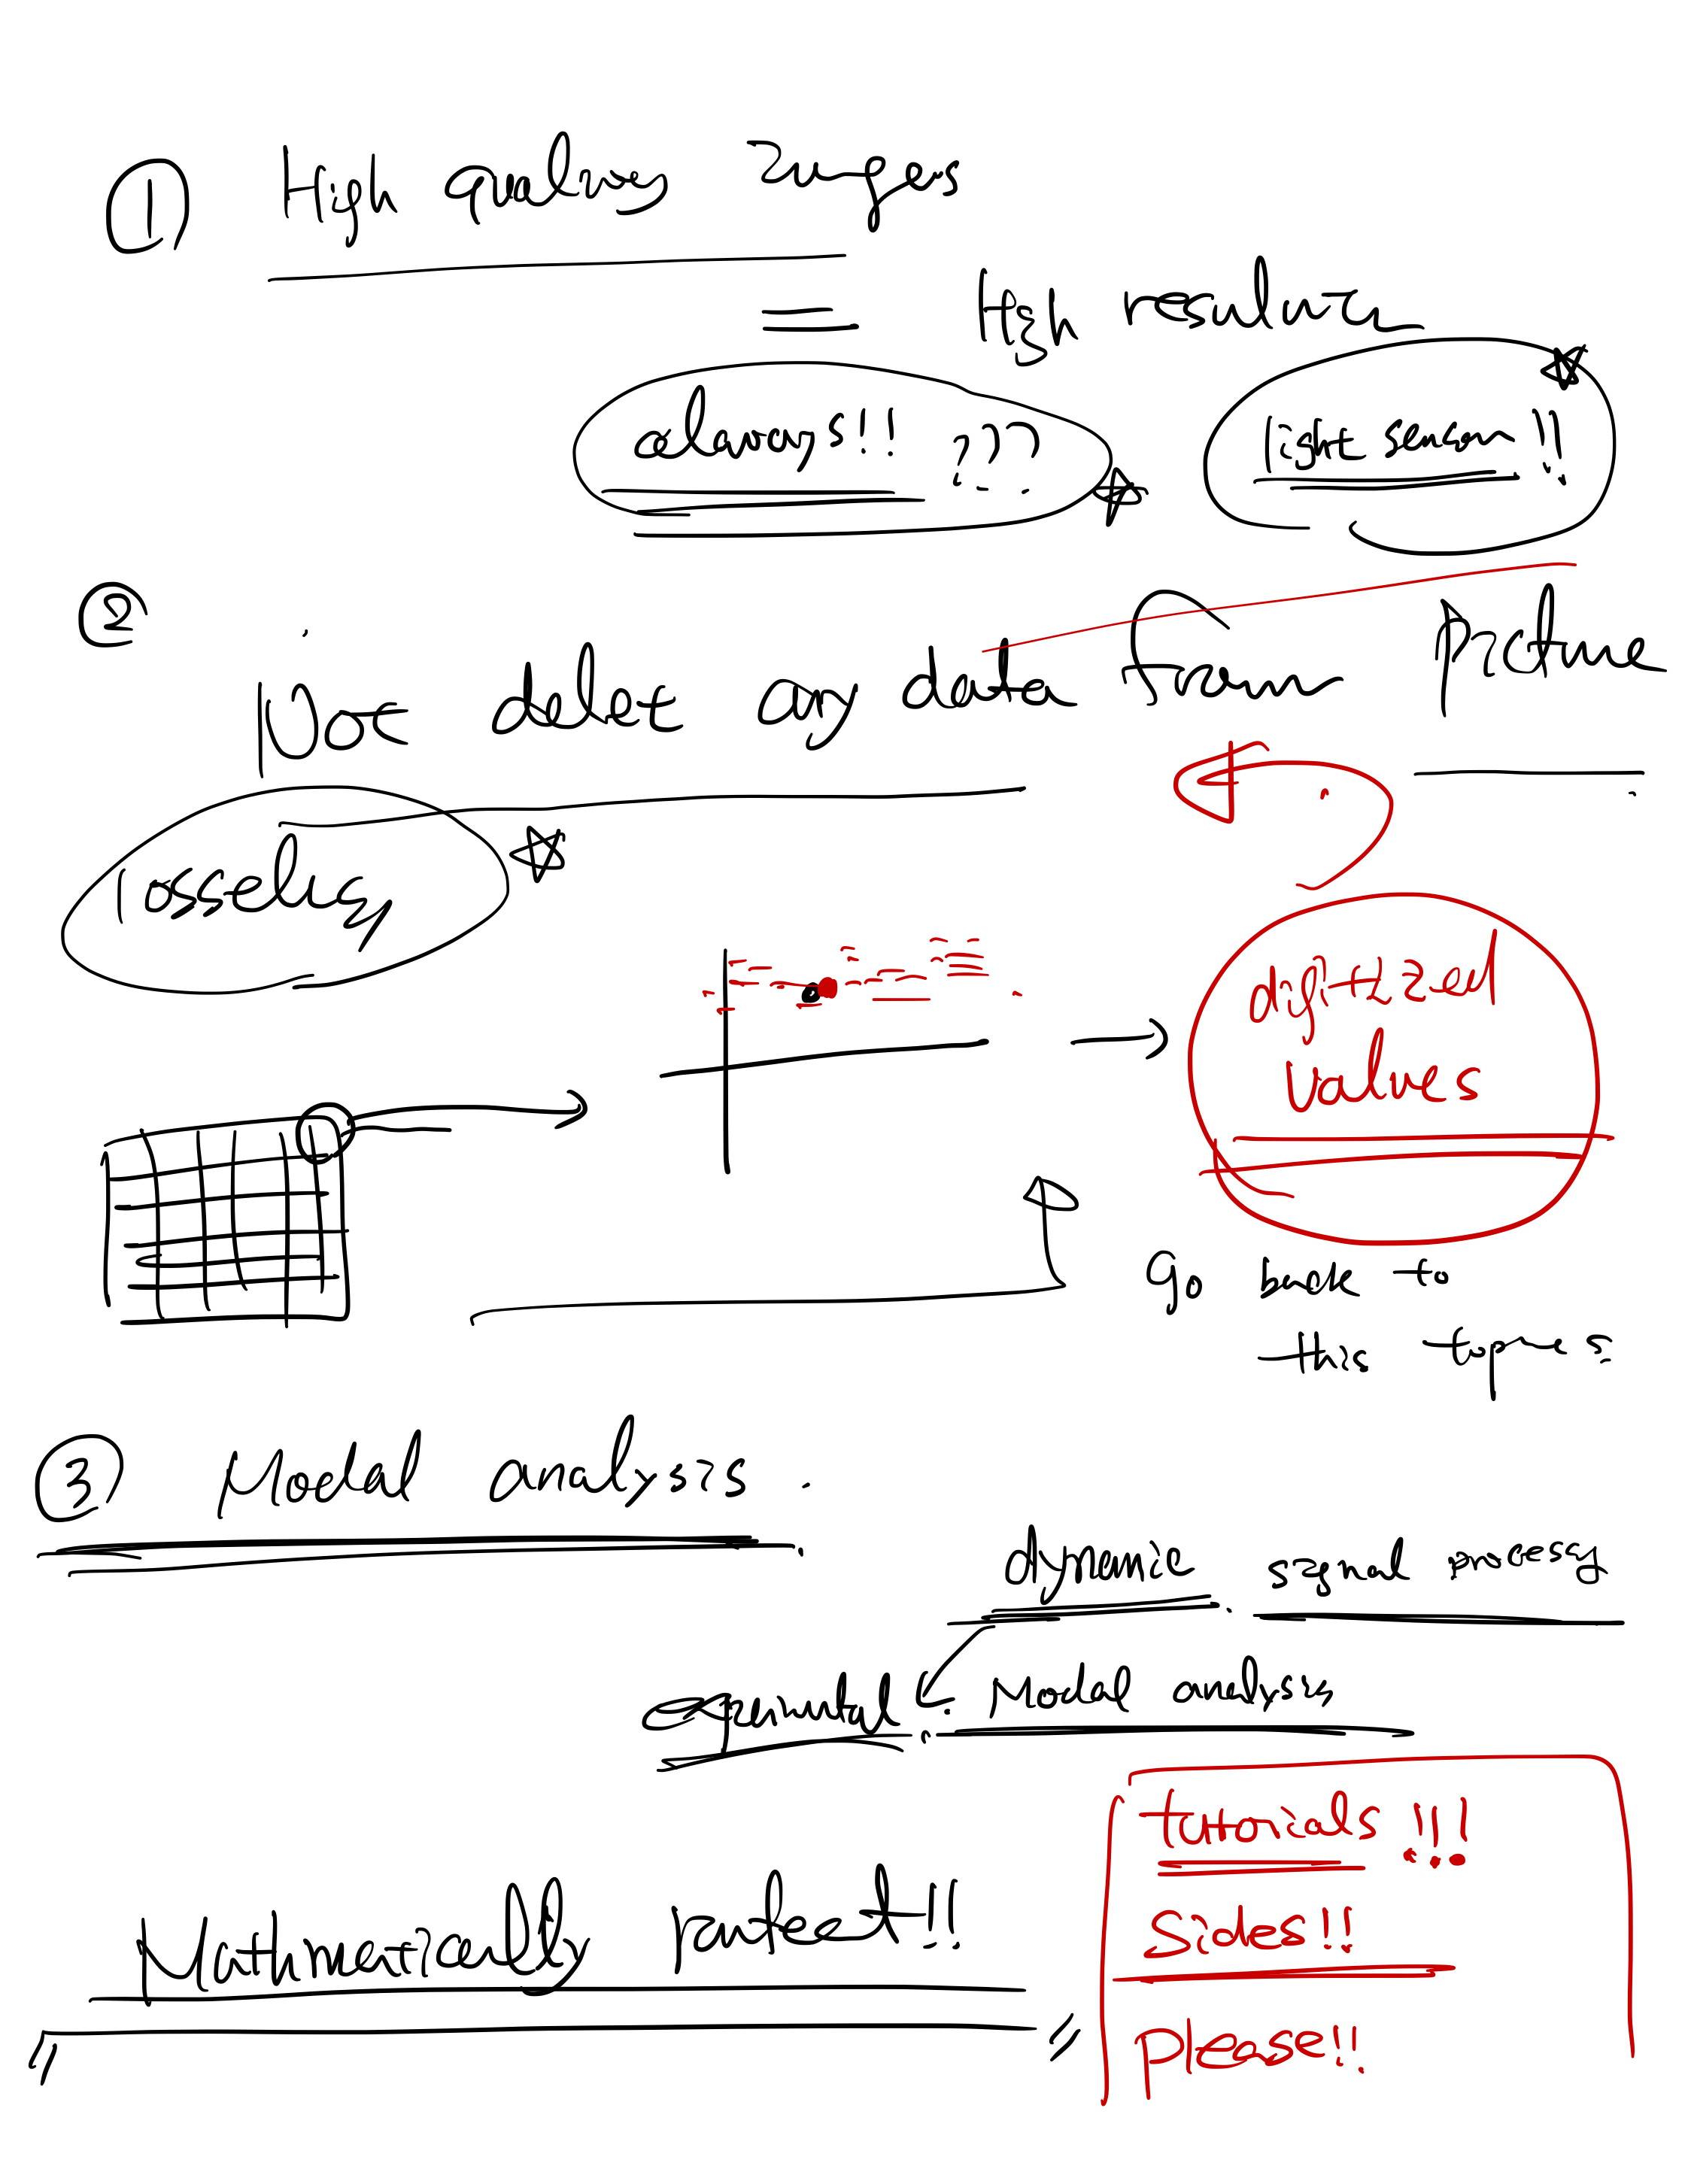 ① High quality Images
= High resolution
always!! ???
light sensor!!
②
Not delet any data from Picture
digitized
values
Go back to
this topics
③ Modal analysis.
dynamic. signal processg
experimental. Modal analysis
tutorials !!!
Sides!!
Mathmatically perfect!!
Please!!